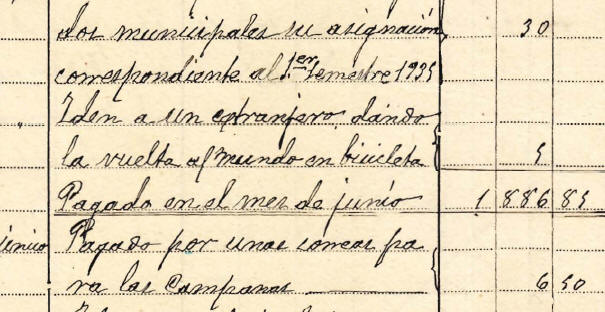 dos municipales su asignación 30
correspondiente al 1.er semestre 1935
Iden a un extranjero, dando
la vuelta al mundo en bicicleta 5
Pagado en el mes de junio 1 886 85
único Pagado por unas correas pa
ra las Campanas 6 50